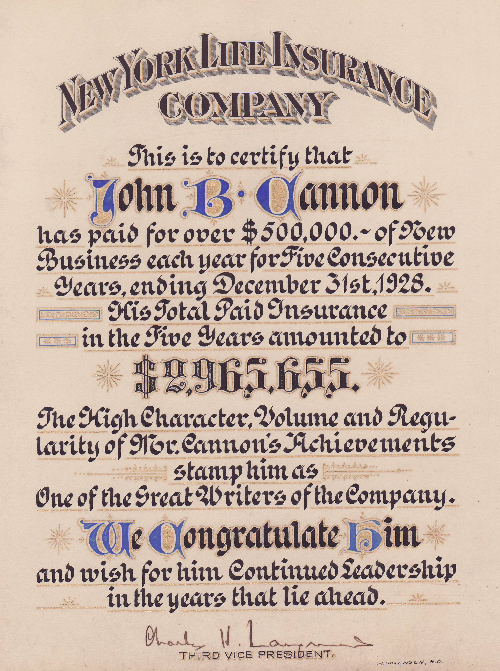 NEW YORK LIFE INSURANCE
COMPANY
This is to certify that
John B. Cannon
has paid for over $500,000.~ of New
Business each year for Five Consecutive
Years, ending December 31st, 1928.
His Total Paid Insurance
in the Five Years amounted to
$2,965,655.
The High Character, Volume and Regu-
larity of Mr. Cannon's Achievements
stamp him as
One of the Great Writers of the Company.
We Congratulate Him
and wish for him Continued Leadership
in the years that lie ahead.
THIRD VICE PRESIDENT.